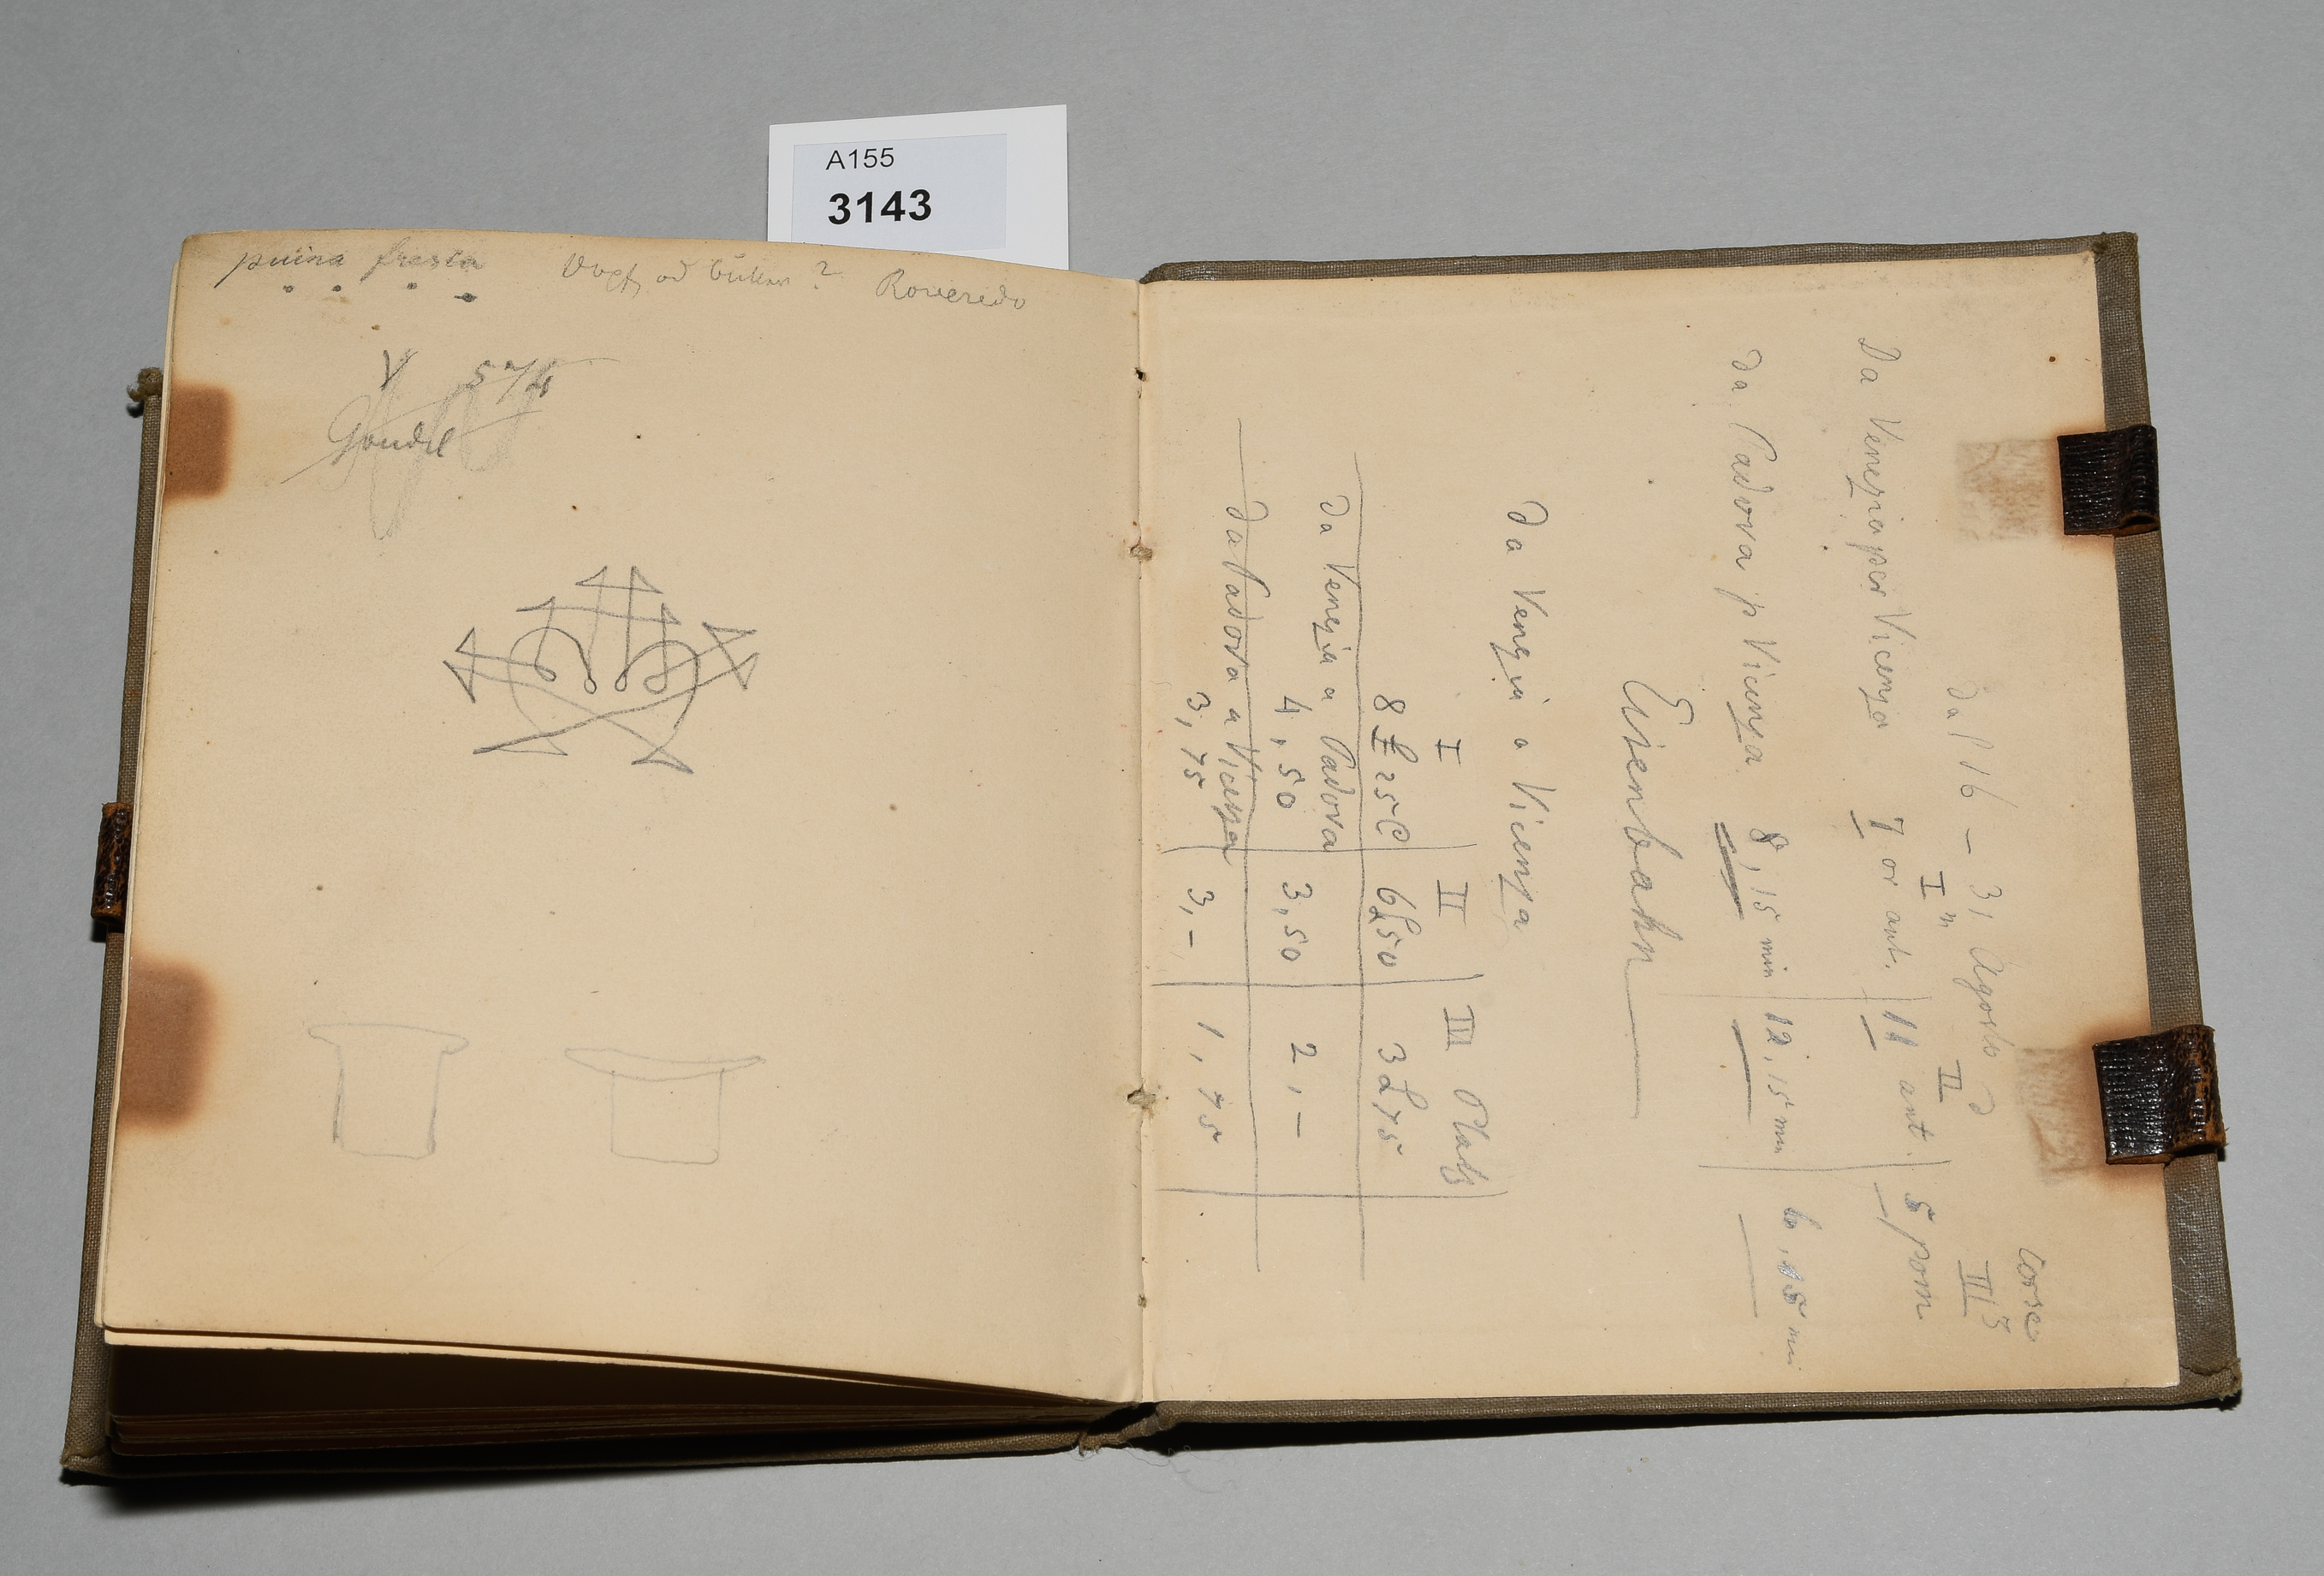 A155
3143
puina fresca od Butter? Roveredo
V 574
Gondel
Da p 16 – 31 Agosto
Corse
I II III
Da Venezia per Vicenza 7 or ant. 11 ant. 5 pom
Da Padova p Vicenza 8,15 min 12,15 min 6,15 min
Eisenbahn
Da Venezia a Vicenza
I II III Platz
8 £ 25 C 6£50 3£75
Da Venezia a Padova
4,50 3,50 2,–
Da Padova a Vicenza
3,75 3,– 1,75